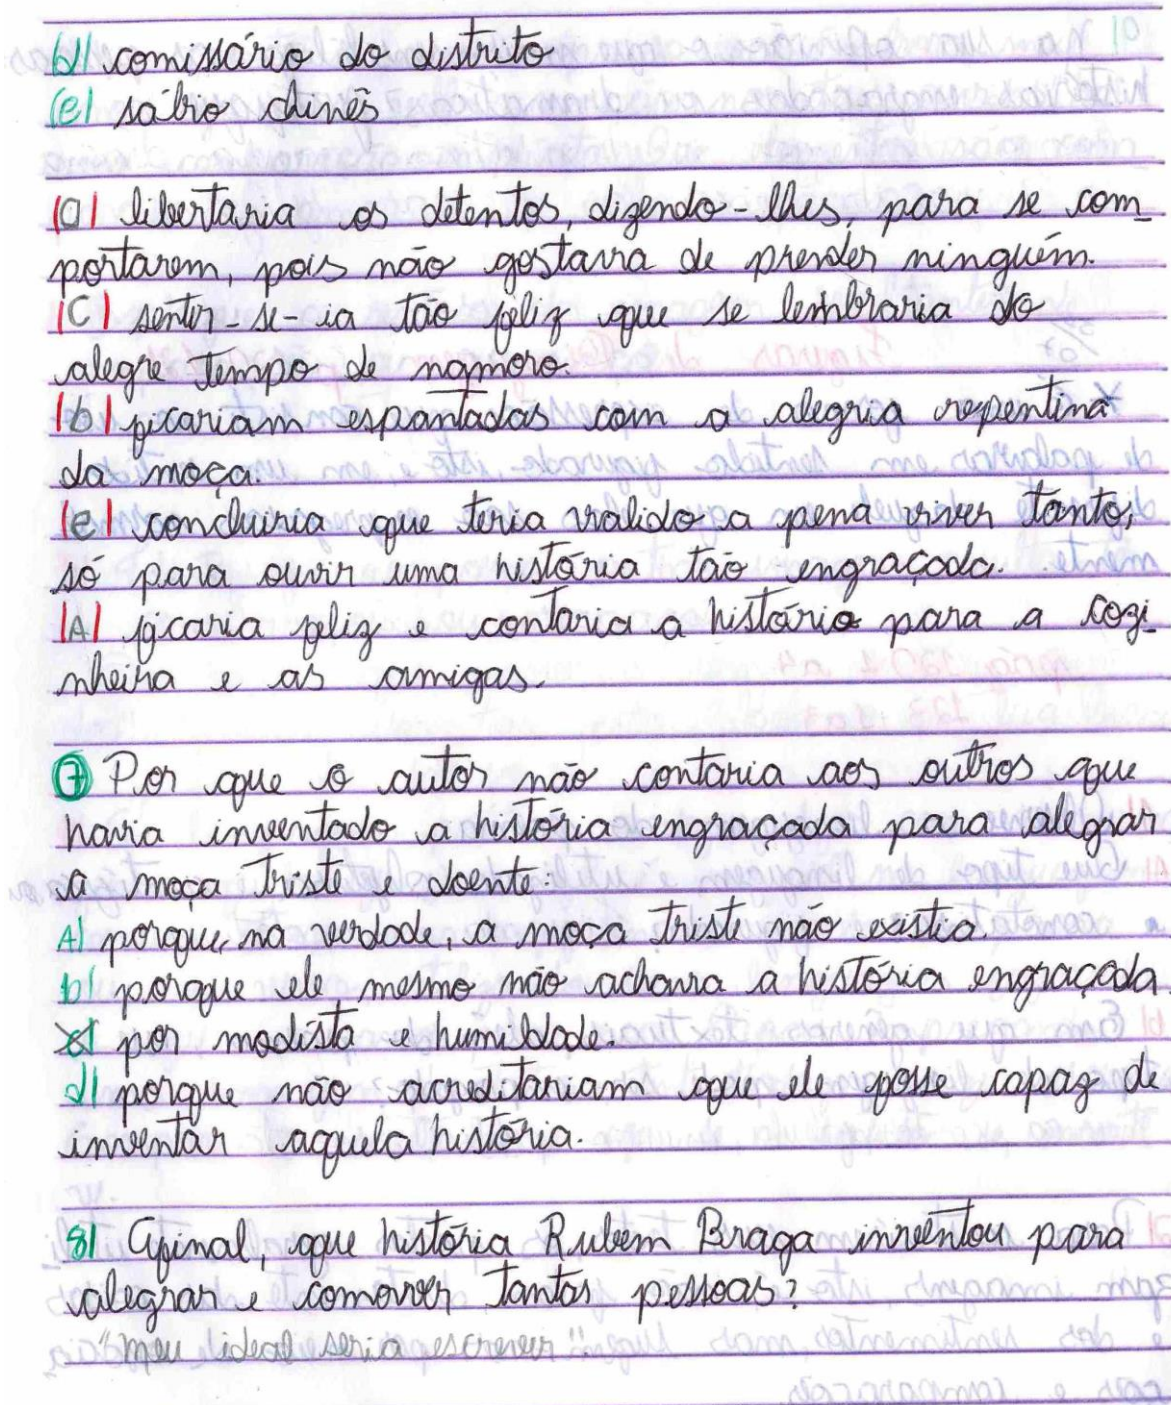 d) comissário do distrito
(e) sábio chinês
(a) libertaria os detentos, dizendo-lhes, para se com_
portarem, pois não gostava de prender ninguém.
(C) sentir-se-ia tão feliz que se lembraria do
alegre tempo de namoro.
(b) ficariam espantadas com a alegria repentina
da moça.
(e) concluiria que teria valido a pena viver tanto,
só para ouvir uma história tão engraçada.
(A) ficaria feliz e contaria a história para a cozi_
nheira e as amigas.
7 Por que o autor não contaria aos outros que
havia inventado a história engraçada para alegrar
a moça triste e doente:
A) porque, na verdade, a moça triste não existia.
b) porque ele mesmo não achava a história engraçada.
c) por modésta e humildade.
d) porque não acreditariam que ele fosse capaz de
inventar aquela história.
8) Afinal, que história Rubem Braga inventou para
alegrar e comover tantas pessoas?
"meu ideal seria escrever"